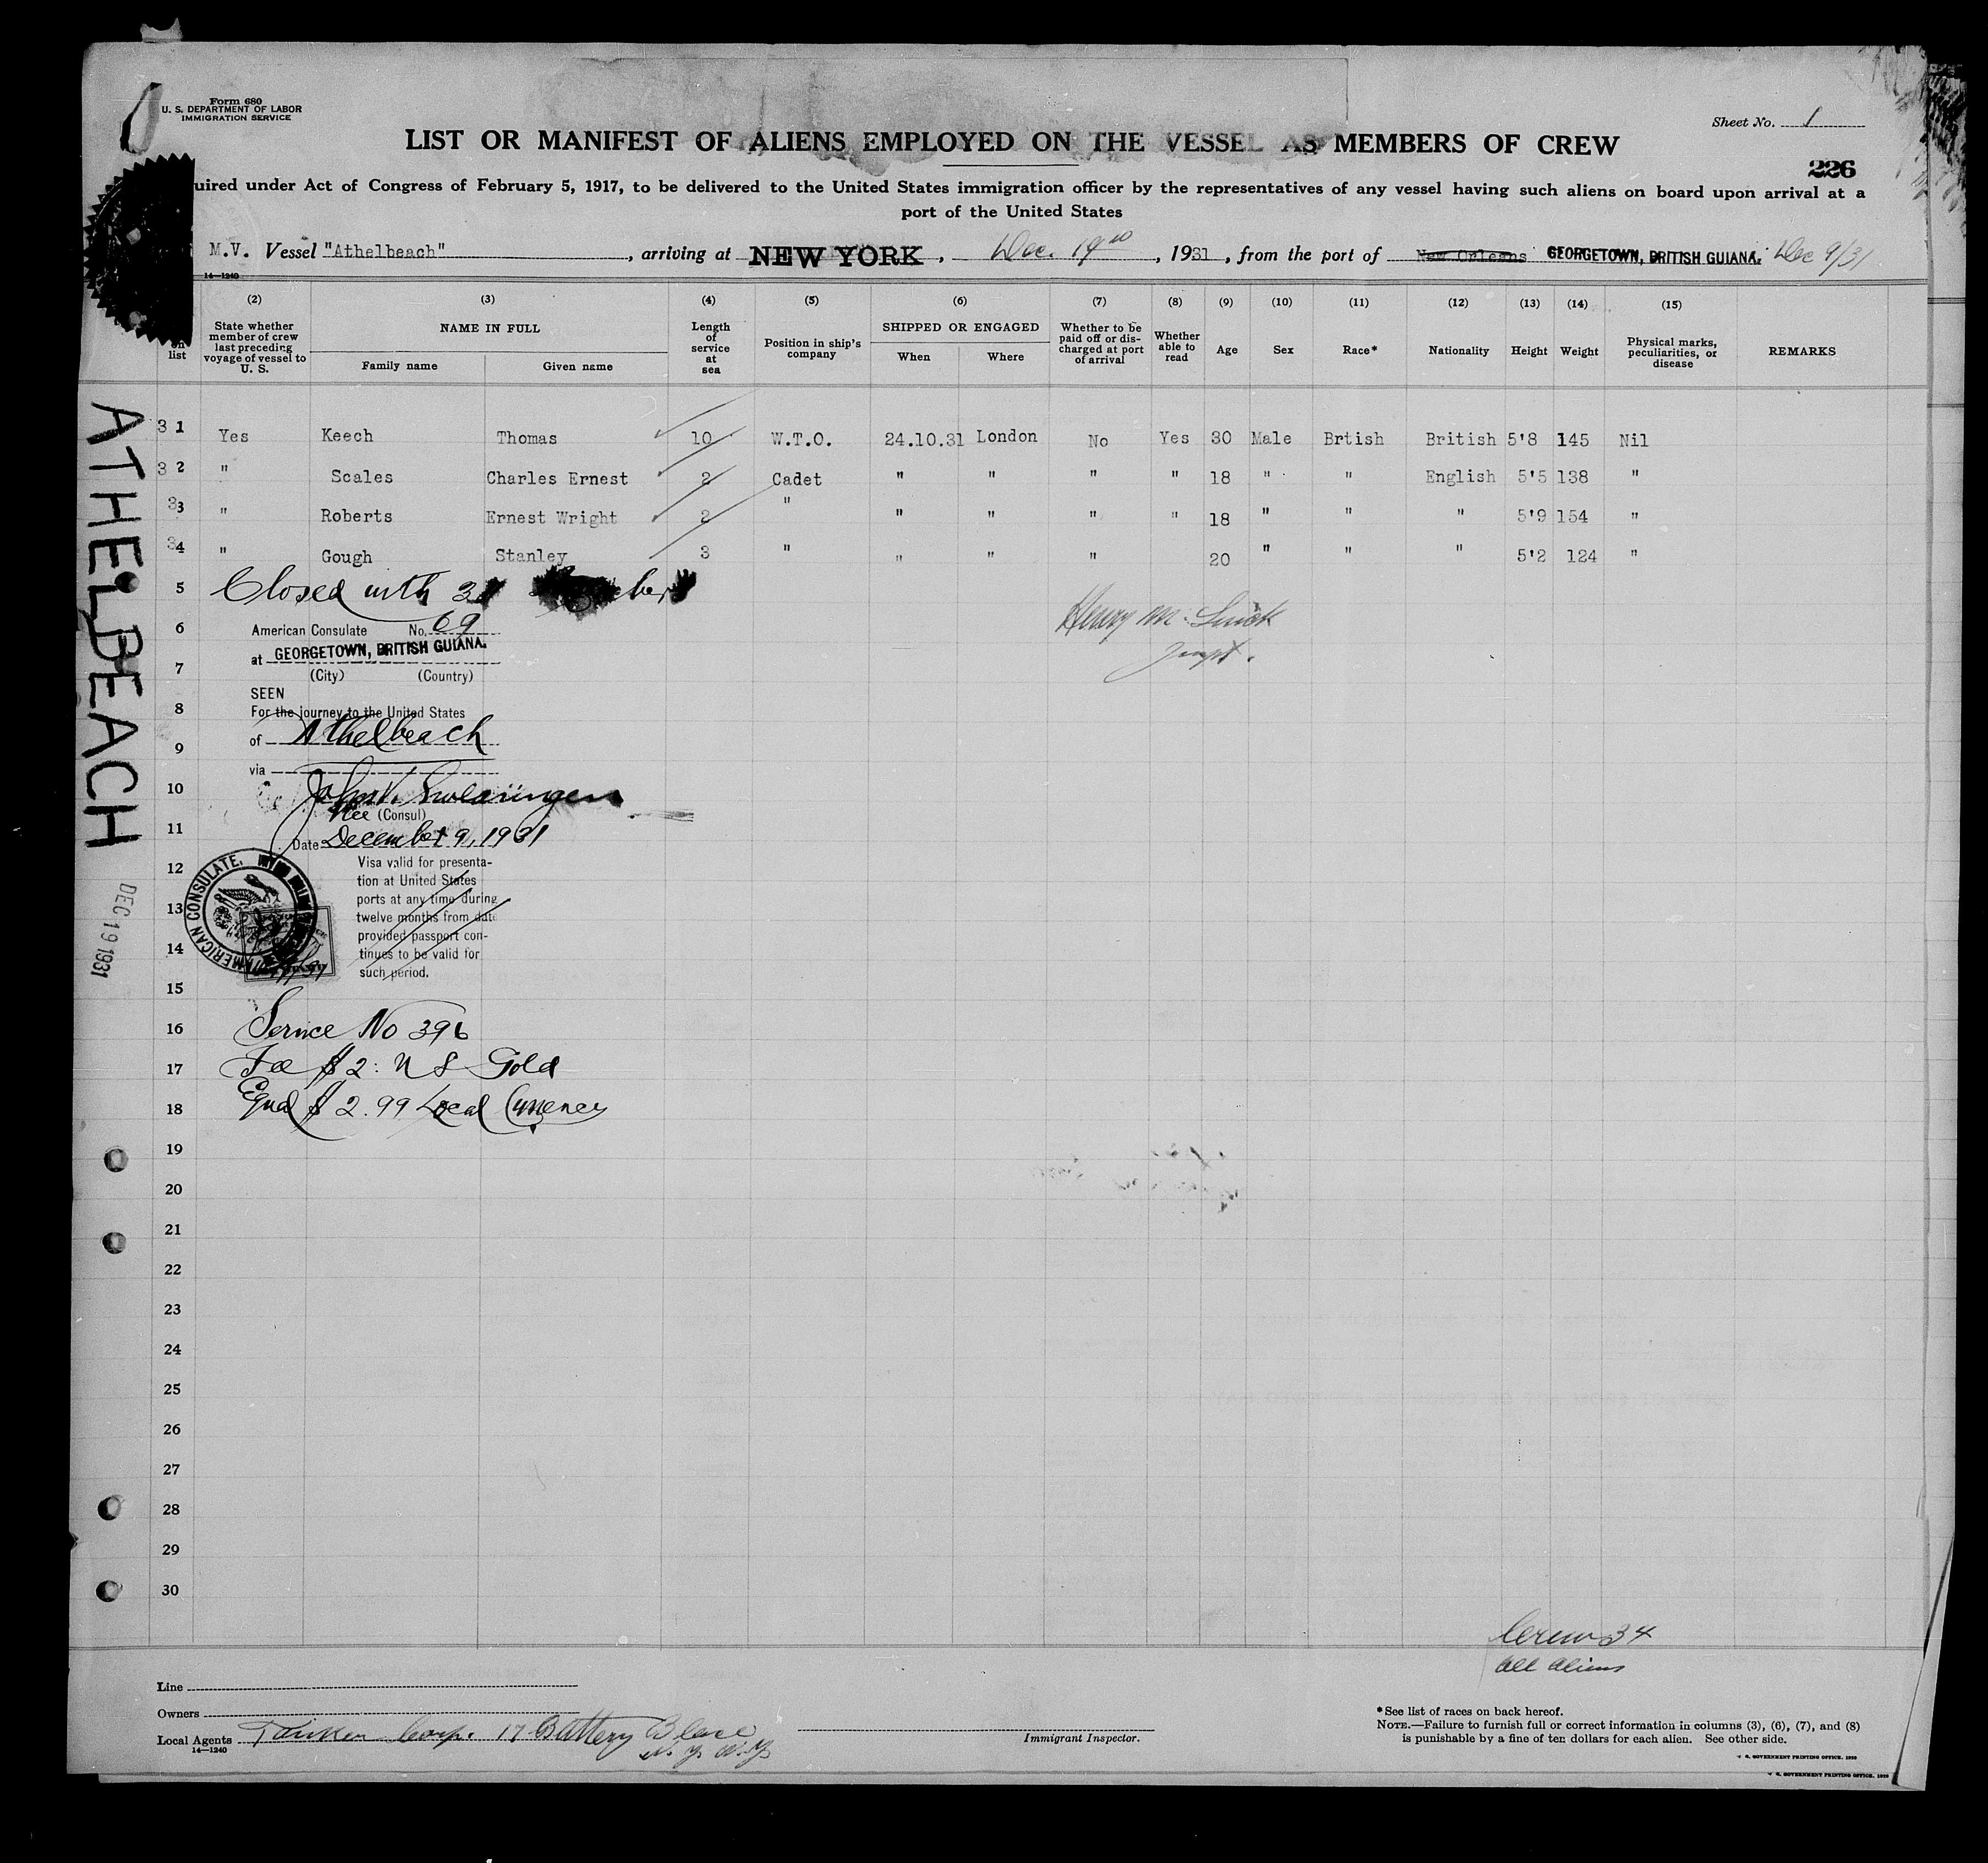 Form 680
U. S. DEPARTMENT OF LABOR
IMMIGRATION SERVICE
Sheet No. 1
LIST OR MANIFEST OF ALIENS EMPLOYED ON THE VESSEL AS MEMBERS OF CREW
226
uired under Act of Congress of February 5, 1917, to be delivered to the United States immigration officer by the representatives of any vessel having such aliens on board upon arrival at a
port of the United States
M.V. Vessel "Athelbeach", arriving at NEW YORK, Dec. 19, 1931, from the port of New Orleans GEORGETOWN, BRITISH GUIANA. Dec 9/31
14—1240
(2) (3) (4) (5) (6) (7) (8) (9) (10) (11) (12) (13) (14) (15)
on list
State whether member of crew last preceding voyage of vessel to U. S.
NAME IN FULL
Family name Given name
Length of service at sea
Position in ship's company
SHIPPED OR ENGAGED
When Where
Whether to be paid off or discharged at port of arrival
Whether able to read
Age Sex Race* Nationality Height Weight
Physical marks, peculiarities, or disease
REMARKS
3 1 Yes Keech Thomas 10 W.T.O. 24.10.31 London No Yes 30 Male Brtish British 5'8 145 Nil
3 2 " Scales Charles Ernest 2 Cadet " " " " 18 " " English 5'5 138 "
3 3 " Roberts Ernest Wright 2 " " " " " 18 " " " 5'9 154 "
3 4 " Gough Stanley 3 " " " " 20 " " " 5'2 124 "
5 Closed with
6 American Consulate No. 69
at GEORGETOWN, BRITISH GUIANA.
7 (City) (Country)
SEEN
8 For the journey to the United States
9 of Athelbeach
via
10 John
Vice (Consul)
11 Date December 9, 1931
12 Visa valid for presenta-
tion at United States
13 ports at any time during
twelve months from date
14 provided passport con-
tinues to be valid for
such period.
AMERICAN CONSULATE.
15
16 Service No 396
17 Fee $2: US Gold
18 Equal $2.99 Local Currency
19
20
21
22
23
24
25
26
27
28
29
30
Henry M.
Inspt.
ATHELBEACH
DEC 19 1931
Crew 34
All aliens
Line
Owners
Local Agents Tanker Corp. 17 Battery Place
N.Y. N.Y.
14—1240
Immigrant Inspector.
*See list of races on back hereof.
NOTE.—Failure to furnish full or correct information in columns (3), (6), (7), and (8)
is punishable by a fine of ten dollars for each alien. See other side.
GOVERNMENT PRINTING OFFICE.
GOVERNMENT PRINTING OFFICE.